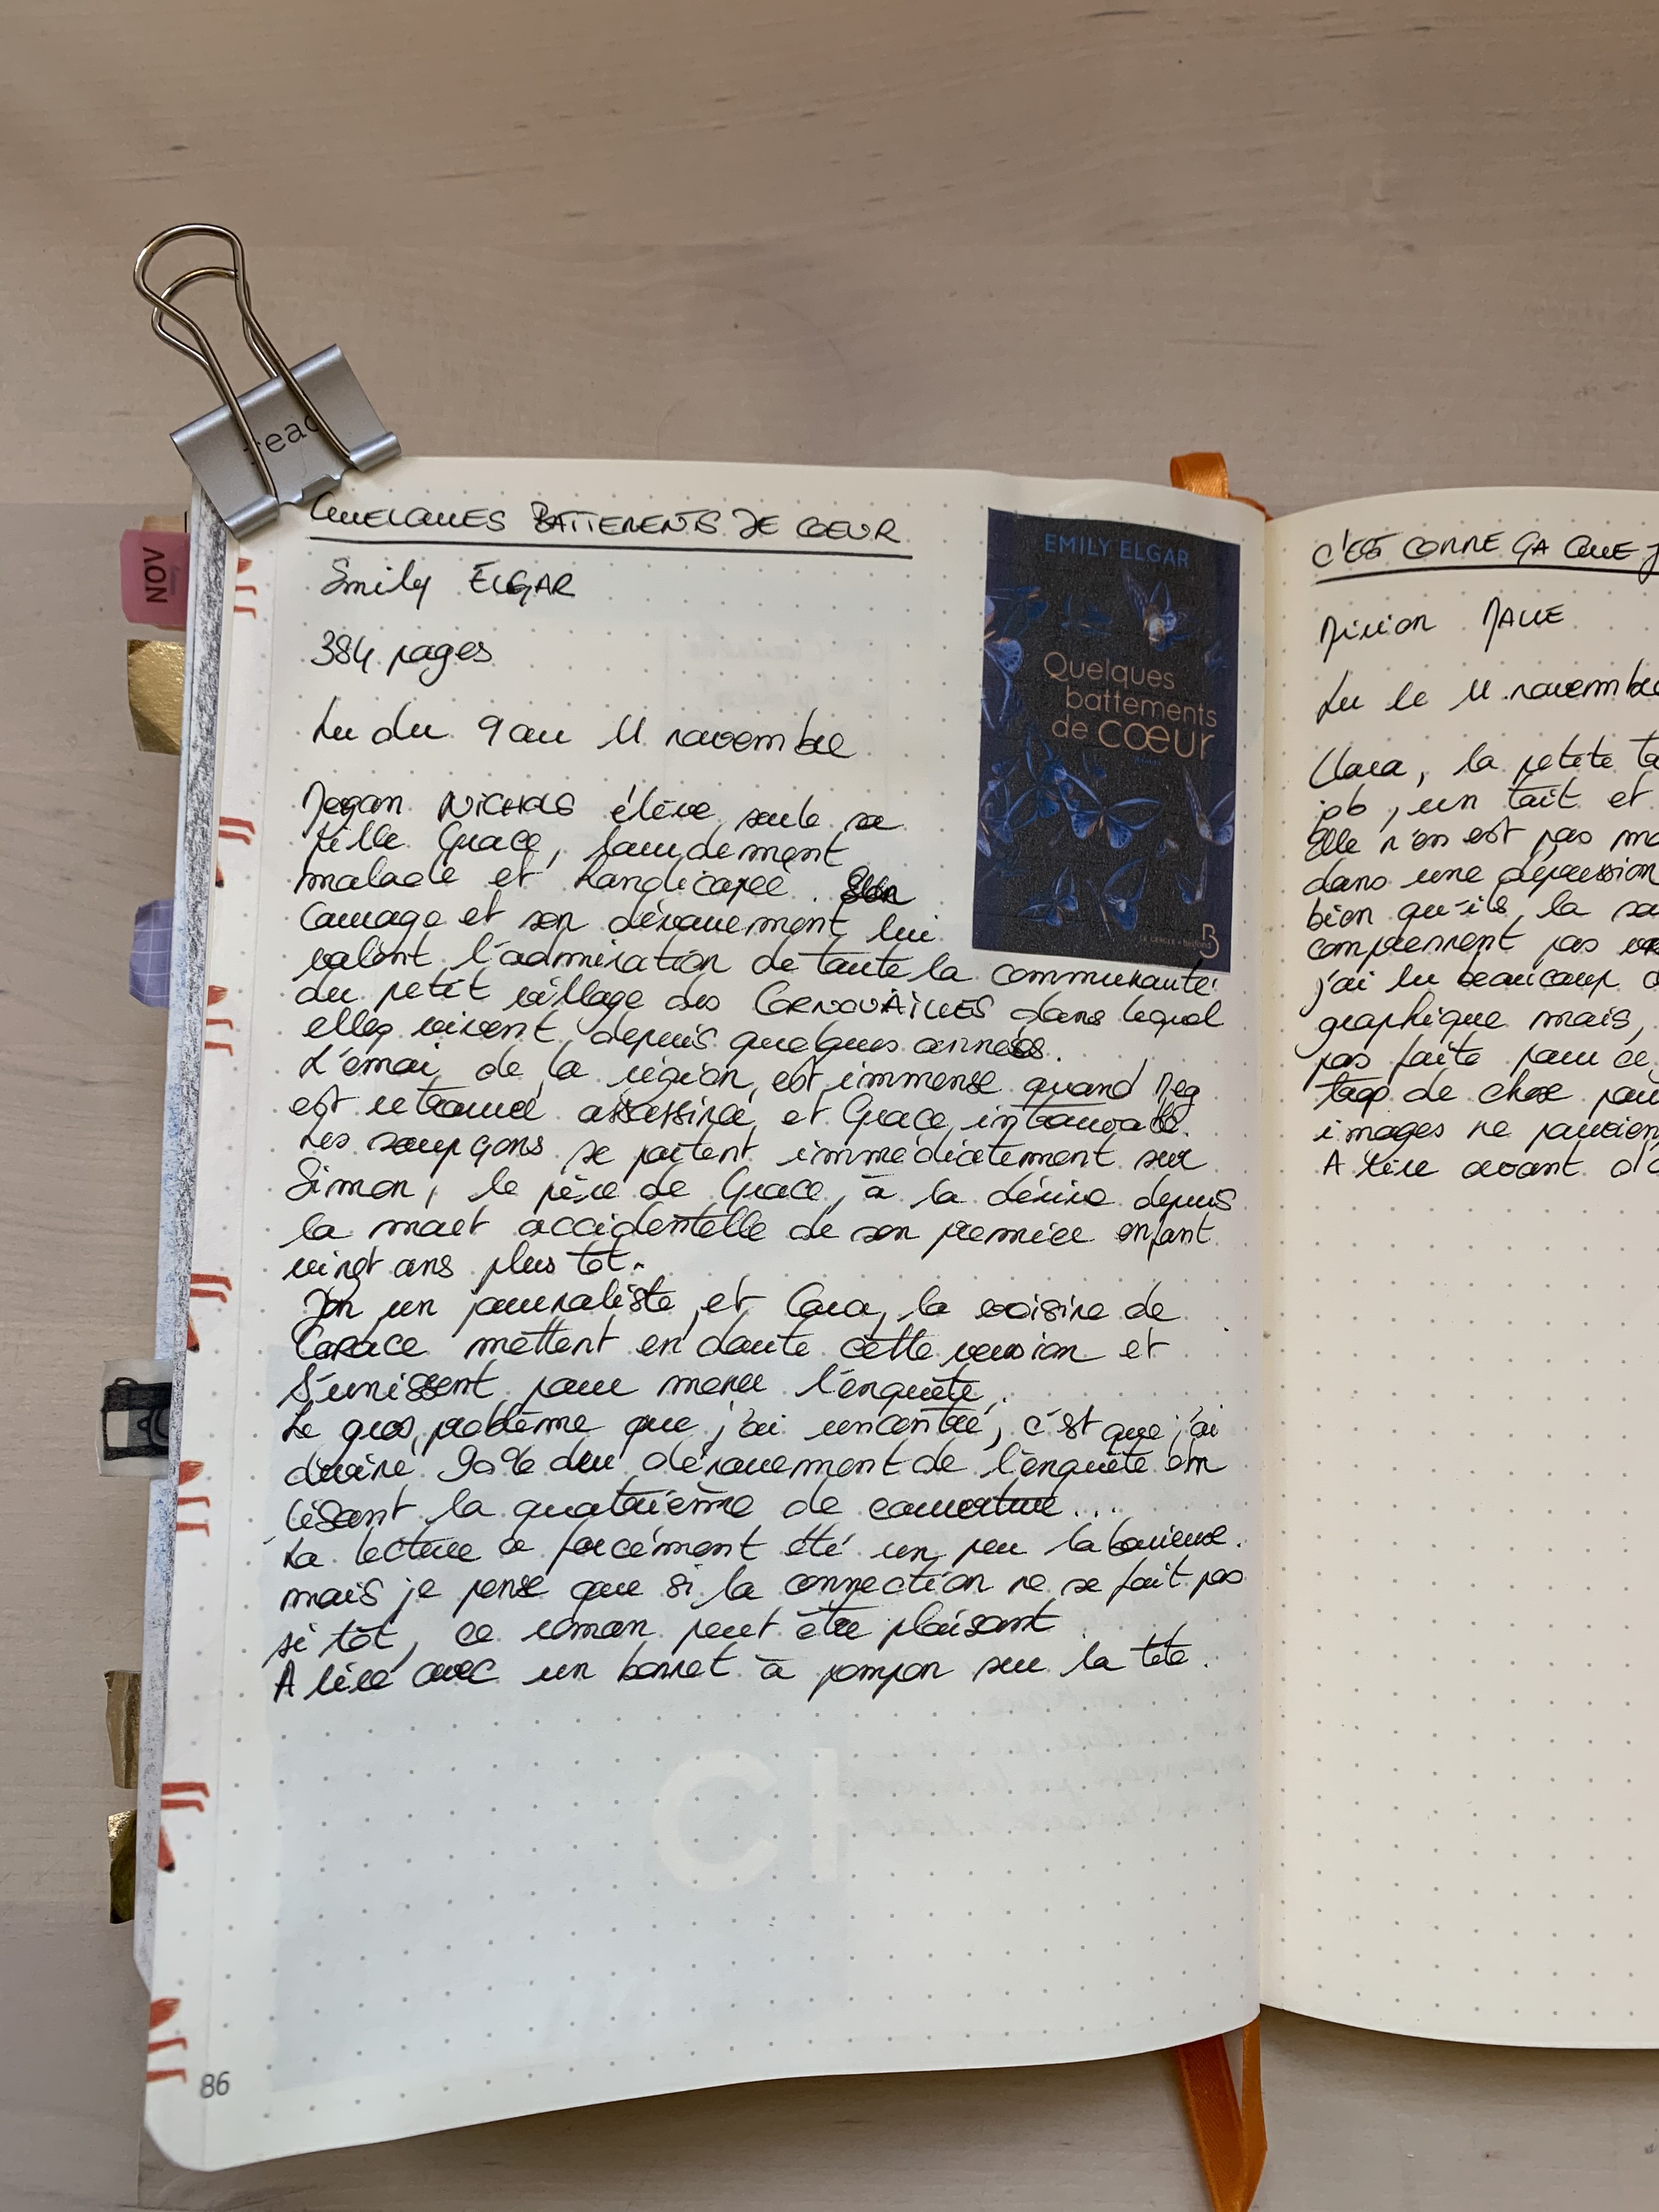 read
NOV
QUELQUES BATTEMENTS DE COEUR
Emily ELGAR
384 pages
Lu du 9 au 11 novembre
Megan NICHOLS élève seule sa
fille Grace, lourdement
malade et handicapée. Son
courage et son dévouement lui
valent l'admiration de toute la communauté
du petit village des CORNOUAILLES dans lequel
elles vivent depuis quelques années.
L'émoi de la région est immense quand Meg
est retrouvée assassinée et Grace introuvable.
Les soupçons se portent immédiatement sur
Simon, le père de Grace, à la dérive depuis
la mort accidentelle de son premier enfant
vingt ans plus tôt.
Jon un journaliste, et Cara, la voisine de
Grace mettent en doute cette version et
s'unissent pour mener l'enquête.
Le gros problème que j'ai rencontré, c'est que j'ai
deviné 90% du dénouement de l'enquête en
lisant la quatrième de couverture...
La lecture a forcément été un peu laborieuse.
mais je pense que si la connection ne se fait pas
si tôt, ce roman peut être plaisant
A lire avec un bonnet à pompon sur la tête.
86
EMILY ELGAR
Quelques
battements
de cœur
B
C'EST COMME ÇA QUE J
Mirion MALLE
Lu le 11 novembre
Clara, la petite
job, un tait et
Elle n'en est pas
dans une dépression
bien qu'ils la
comprennent pas
j'ai lu beaucoup
graphique mais,
pas faite pour ce
trop de chose pour
images ne
A lire avant